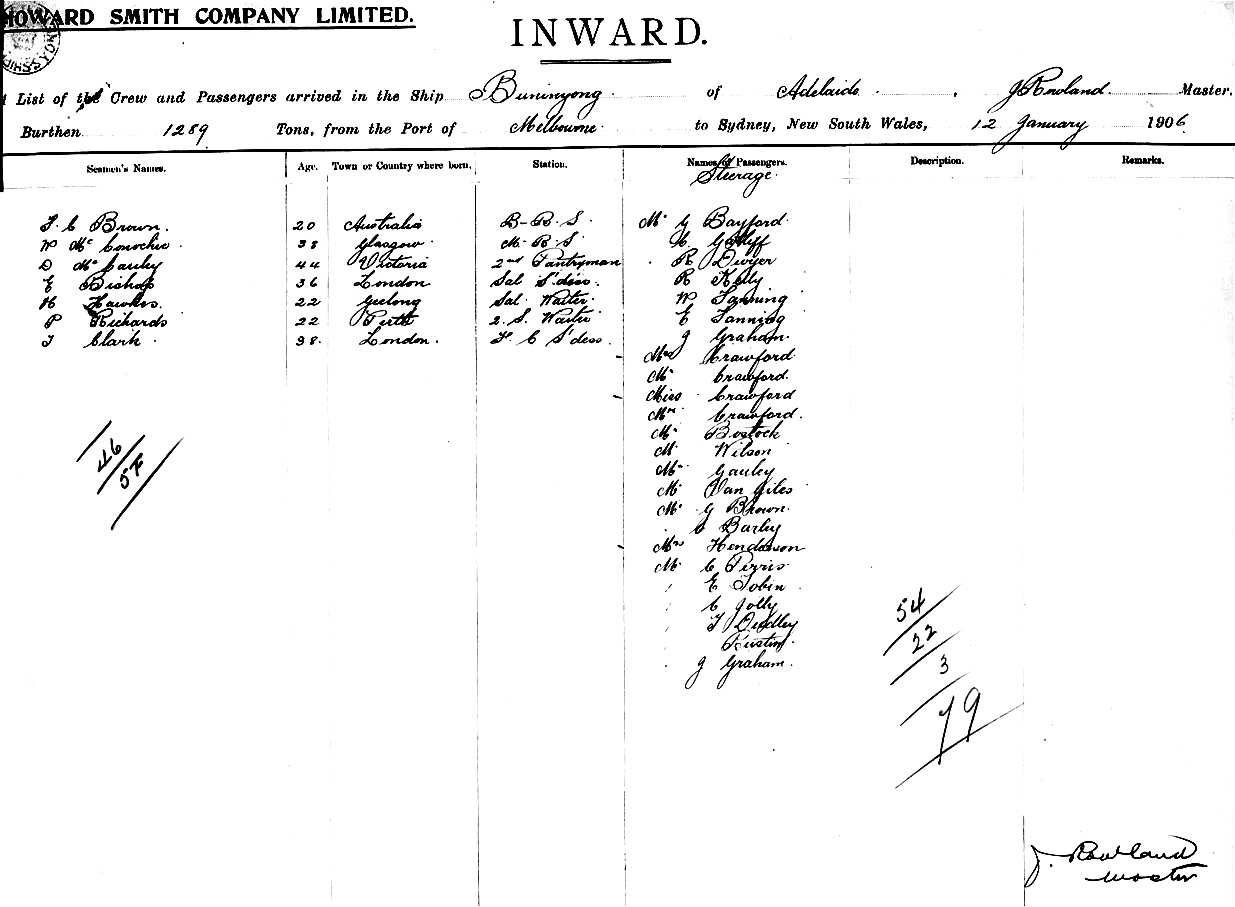 HOWARD SMITH COMPANY LIMITED.
INWARD.
List of the Crew and Passengers arrived in the Ship Buninyong of Adelaide, J Rowland Master.
Burthen 1289 Tons, from the Port of Melbourne to Sydney, New South Wales, 12 January 1906
Seamen's Names. Age. Town or Country where born. Station. Names of Passengers. Description. Remarks.
Steerage.
C Brown. 20 Australia B-R. S. Mr G Bayford
W Mc Conochie. 38 Glasgow. M. R. S C.
D McCauley 44 Victoria 2nd Pantryman R Dwyer
E Bishop 36 London Sal S'dess. R Kelly
H Hawkes. 22 Geelong Sal. Waiter. W Fanning
P Richards 22 Perth 2. S. Waiter E Fanning
T Clark. 38. London. F. C S'dess. J Graham.
Mrs Crawford
Mr Crawford.
Miss Crawford
Mr Crawford.
Mr Bostock
Mr Wilson
Mr Gauley
Mr Van Giles
Mr G Brown.
Barley
Mrs Henderson
Mr C Pirris
E Tobin
C Jolly
T Dudley
Rustin.
J Graham.
46
54
54
22
3
79
J. Rowland
Master